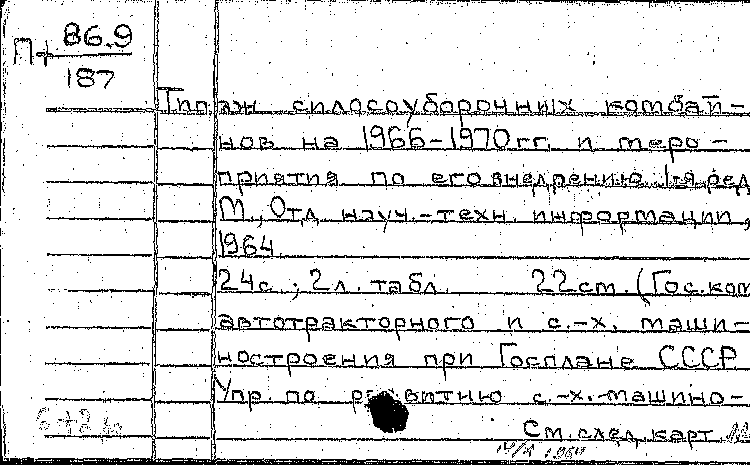 П+ 86.9
187
Типаж силосоуборочных комбай-
нов на 1966-1970гг. и меро-
приятия по его внедрению. 1-я ред
М., Отд науч.-техн. информации,
1964
24с.; 2л. табл. 22см. (Гос.ком
автотракторного и с.-х. маши-
ностроения при Госплане СССР
Упр. по развитию с.-х.-машино-
См. след. карт